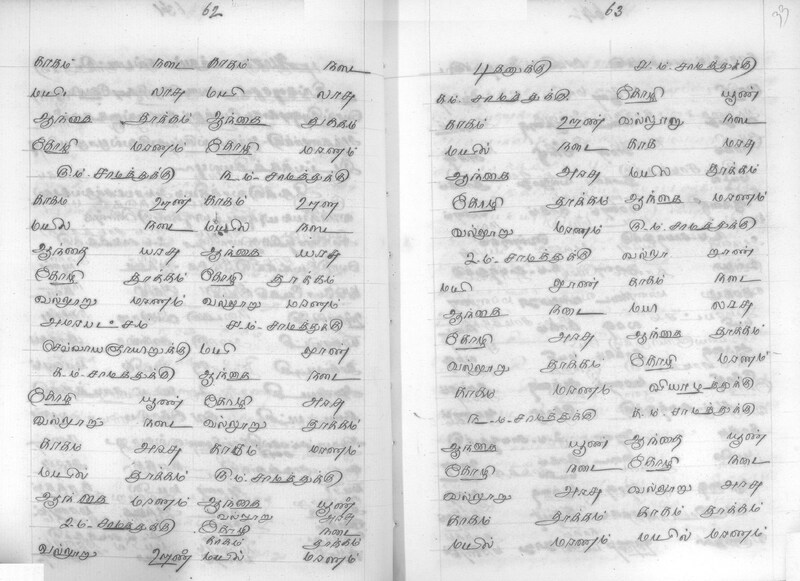 62
காகம் நடை காகம் நடை
மயில் அரசு மயி அரசு
ஆந்தை தூக்கம் ஆந்தை தூக்கம்
கோழி மரணம் கோழி மரணம்
௫-ம்-சாமத்துக்கு ௩-ம்-சாமத்துக்கு
காகம் ஊண் காகம் ஊண்
மயில் நடை மயில் நடை
ஆந்தை அரசு ஆந்தை அரசு
கோழி தூக்கம் கோழி தூக்கம்
வல்லூறு மரணம் வல்லூறு மரணம்
சாமத்துக்கு
மயி ஊண்
சாமத்துக்கு ஆந்தை நடை
கோழி ஊண் கோழி அரசு
வல்லூறு நடை வல்லூறு தூக்கம்
காகம் அரசு காகம் மரணம்
மயில் தூக்கம் ௫-ம்-சாமத்துக்கு
ஆந்தை மரணம் ஆந்தை ஊண்
வல்லூறு அரசு
௨-ம்-சாமத்துக்கு கோழி நடை
காகம் தூக்கம்
வல்லூறு ஊண் மயில் மரணம்
63
33
சாமத்துக்கு
சாமத்துக்கு கோழி ஊண்
காகம் ஊண் வல்லூறு நடை
மயில் நடை காக
ஆந்தை அரசு மயில் தூக்கம்
கோழி தூக்கம் ஆந்தை மரணம்
வல்லூறு மரணம் ௫-ம்-சாமத்துக்கு
௨-ம்-சாமத்துக்கு வல்லூ ஊண்
மயி ஊண் காகம் நடை
ஆந்தை நடை அரசு
கோழி அரசு ஆந்தை தூக்கம்
வல்லூறு தூக்கம் கோழி மரணம்
காகம் மரணம் வியாழத்துக்கு
௩-ம்-சாமத்துக்கு ௧-ம்-சாமத்துக்கு
ஆந்தை ஊண் ஆந்தை ஊண்
கோழி நடை கோழி நடை
வல்லூறு அரசு வல்லூறு அரசு
காகம் தூக்கம் காகம் தூக்கம்
மயில் மரணம் மயில் மரணம்